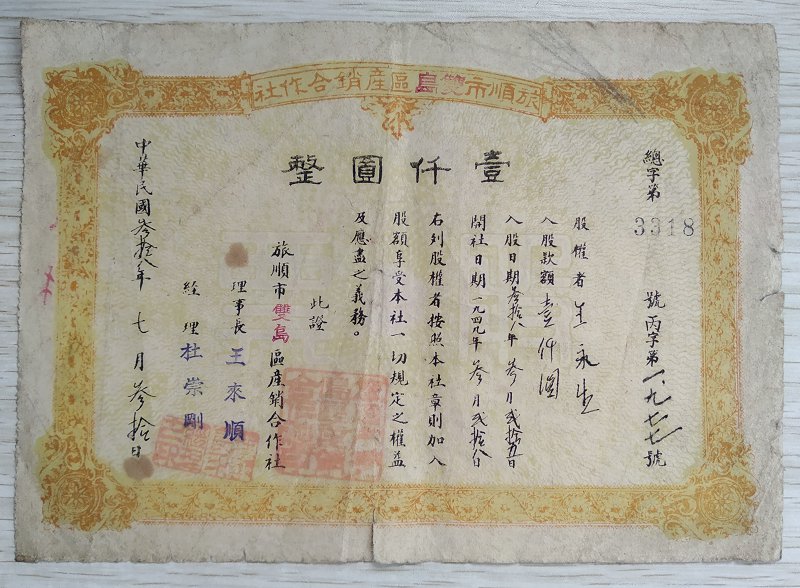 旅順市雙島區產銷合作社
壹仟圓整
總字第3318號丙字第一九七七號
股權者王永生
入股款額壹仟圓
入股日期叁拾八年叁月弍拾五日
開社日期一九四九年叁月弍拾八日
右列股權者按照本社章則加入
股額享受本社一切規定之權益
及應盡之義務。
此證
旅順市雙島區產銷合作社
理事長王來順
經理杜崇剛
中華民國叁拾八年七月叁拾日